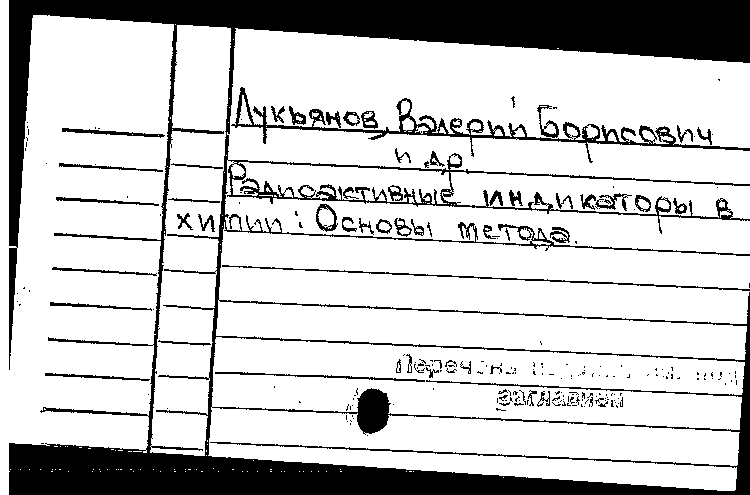 Лукьянов, Валерий Борисович
и др.
Радиоактивные индикаторы в
химии: Основы метода.
Перечень под
заглавием